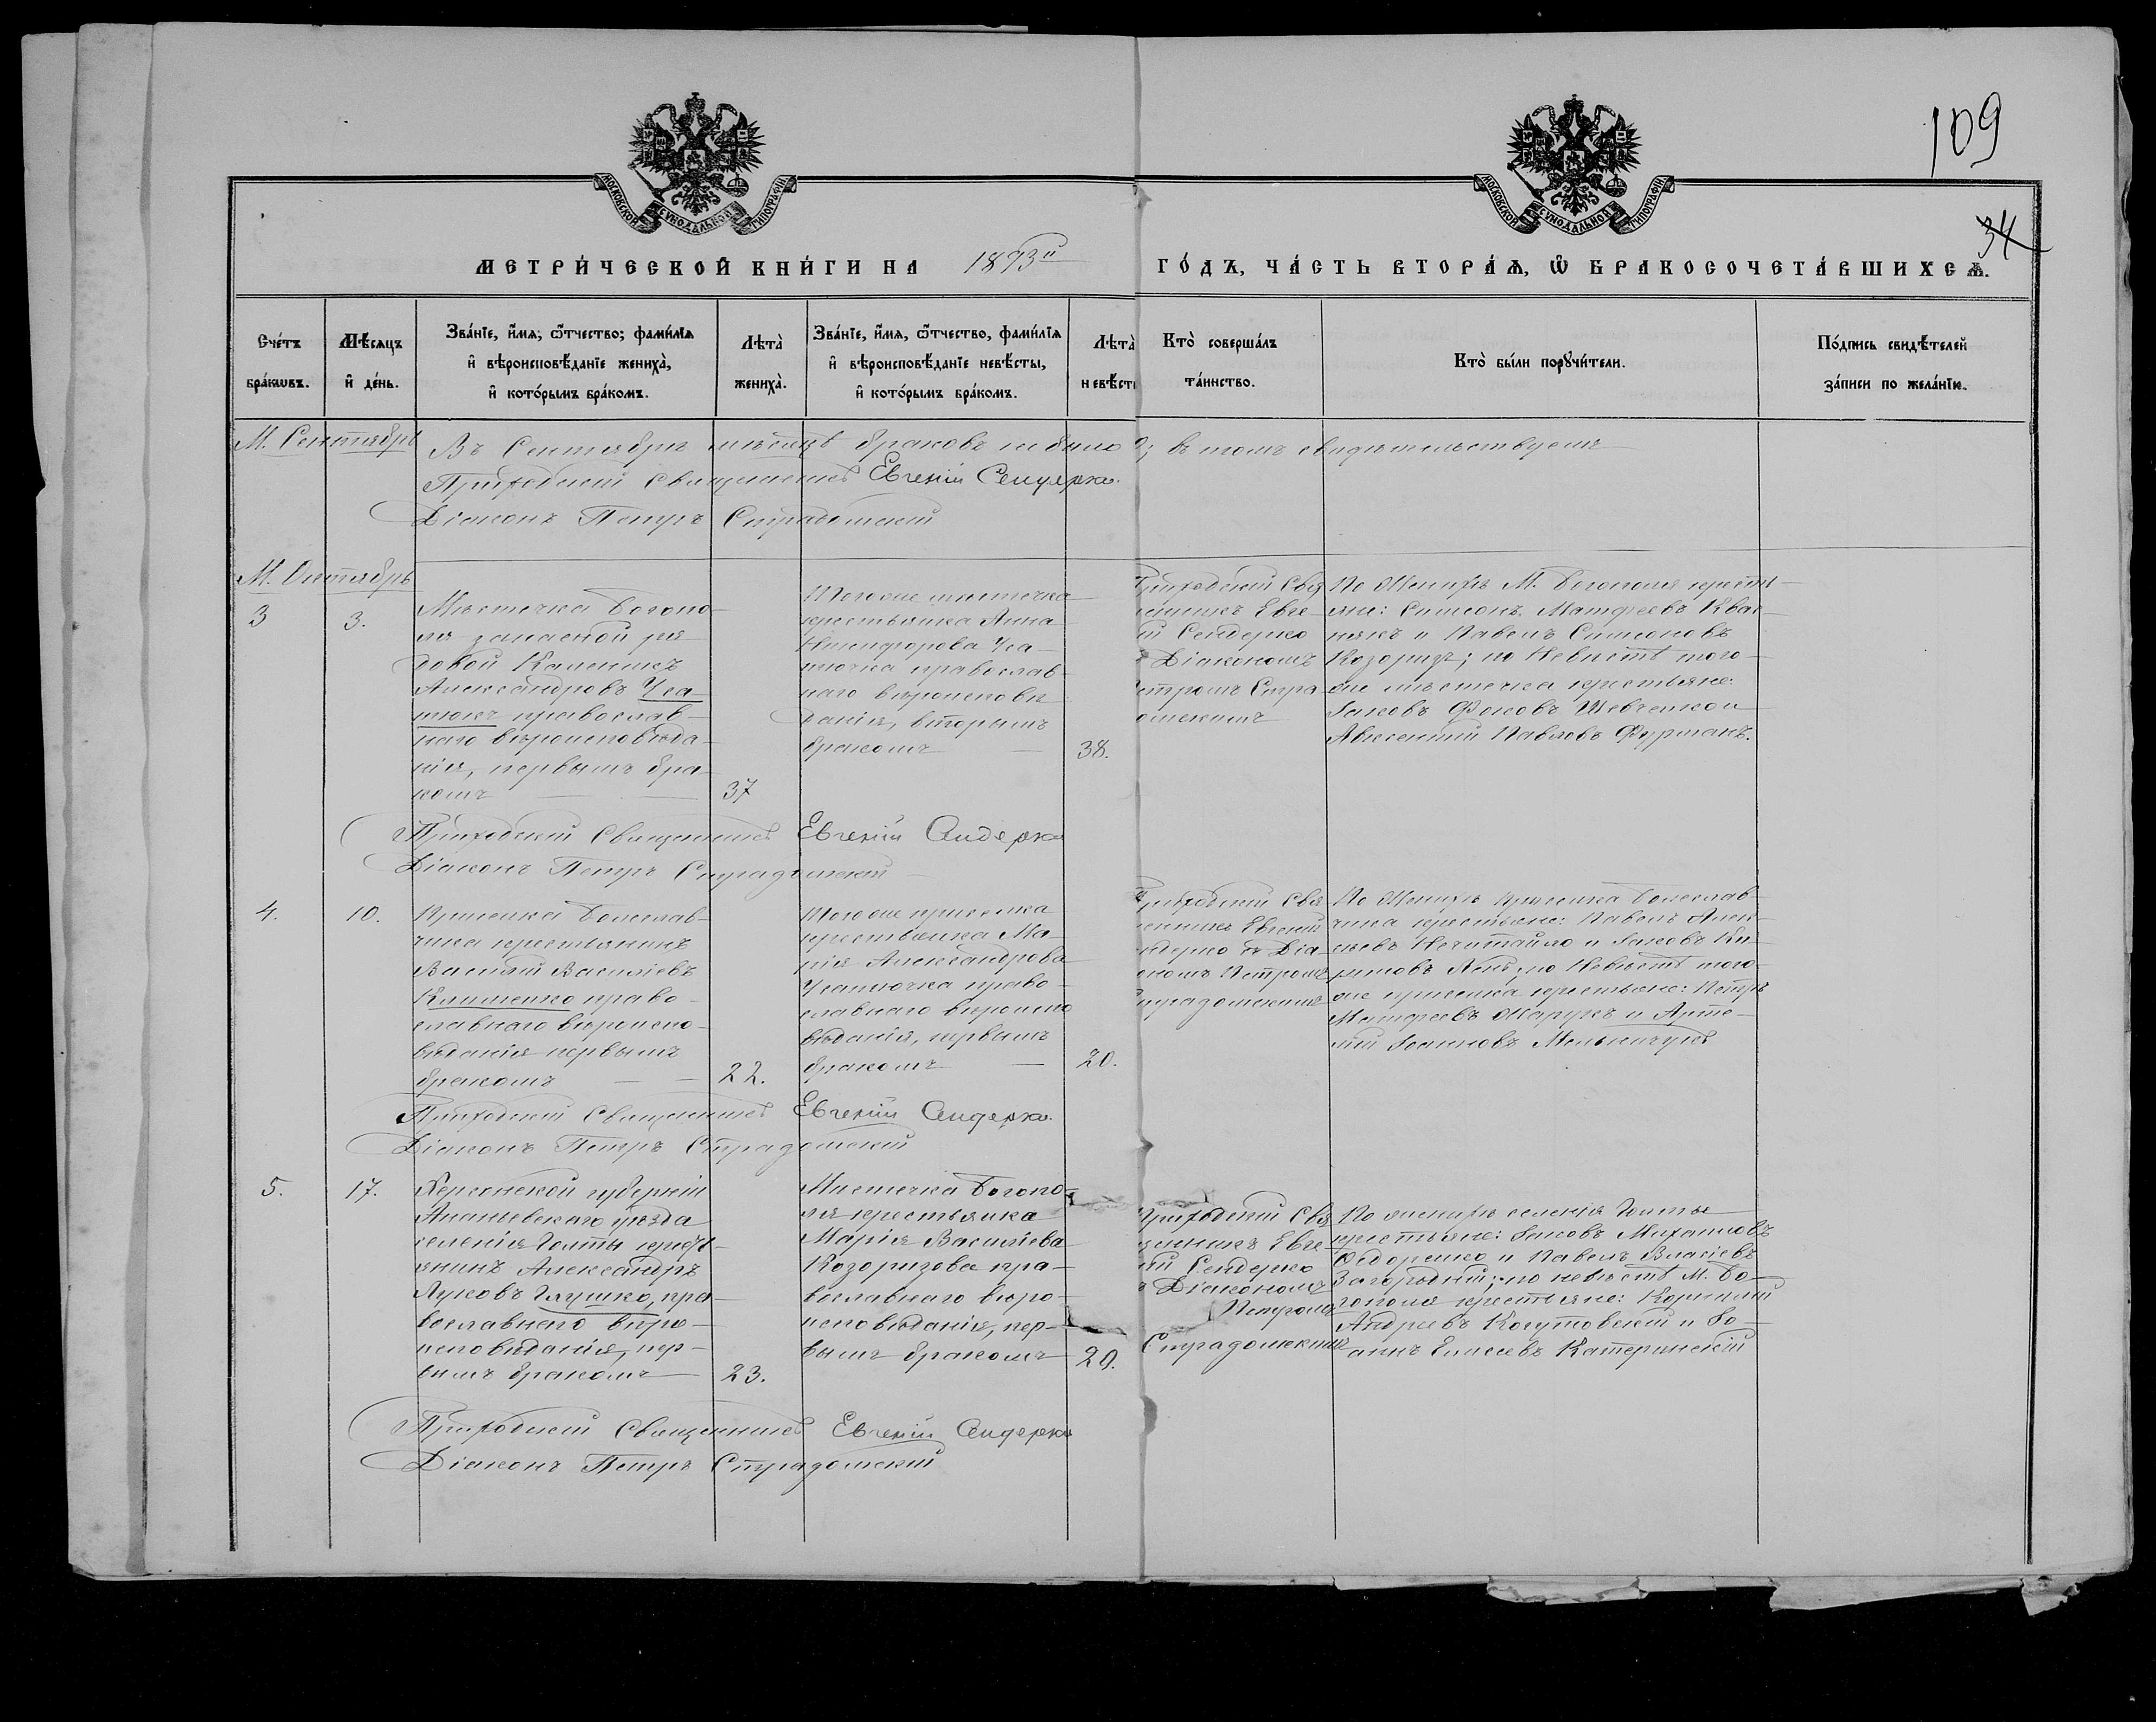 109
34
МОСКОВСКОЙ СѴНОДАЛЬНОЙ ТИПОГРАФІИ
МОСКОВСКОЙ СѴНОДАЛЬНОЙ ТИПОГРАФІИ
МЕТРИ́ЧЕСКОЙ КНИ́ГИ НА 1893й ГО́ДЪ, ЧА́СТЬ ВТОРА́Ѧ, Ѡ БРАКОСОЧЕТА́ВШИХСѦ.
Сче́тъ
бра́кѡвъ.
Мѣ́сѧцъ
и҆ де́нь.
Зва́нїе, и҆́мѧ, ѻ҆́тчество, фами́лїѧ
и҆ вѣроисповѣ́данїе жениха̀,
и҆ кото́рымъ бра́комъ.
Лѣта̀
жениха̀.
Зва́нїе, и҆́мѧ, ѻ҆́тчество, фами́лїѧ
и҆ вѣроисповѣ́данїе невѣ́сты,
и҆ кото́рымъ бра́комъ.
Лѣта̀
невѣ́ст
Кто̀ соверша́лъ
та́инство.
Кто̀ бы́ли порꙋчи́тели.
По́дпись свидѣ́телей
за́писи по жела́нїю.
М. Сентябрь
Въ Сентябрѣ мѣсяцѣ браковъ не было; въ томъ свидѣтельствуемъ
Приходскій Священникъ Евгеній Сендерко.
Діаконъ Петръ Страдомскій
М. Октябрь
3
3.
Мѣстечка Богопо-
ля запасной ря-
довой Каленикъ
Александровъ Уса-
тюкъ православ-
наго вѣроисповѣда-
нія, первымъ бра-
комъ
37
Того же мѣстечка
крестьянка Анна
Никифорова Уса-
тючка православ-
наго вѣроисповѣ
данія, вторымъ
бракомъ
38.
Приходскій Свя
щенникъ Евге-
ній Сендерко
съ Діакономъ
Петромъ Стра
домскимъ
По Женихѣ М. Богополя крестья-
яне: Симеонъ Матфеевъ Квас-
някъ и Павелъ Симеоновъ
Козоризъ; по Невѣстѣ того-
же мѣстечка крестьяне:
Іаковъ Фоковъ Шевченко и
Авксентій Павловъ Фурманъ.
Приходскій Священникъ Евгеній Сендерко
Діаконъ Петръ Страдомскій
4.
10.
Приселка Болеслав-
чика крестьянинъ
Василій Васильевъ
Клименко право-
славнаго вѣроиспо-
вѣданія первымъ
бракомъ
22.
Того же приселка
крестьянка Ма-
рія Александрова
Усатючка право-
славнаго вѣроиспо
вѣданія, первымъ
бракомъ
20.
Приходскій Свя
щенникъ Евгеній
Сендерко съ Діа-
кономъ Петромъ
Страдомскимъ
По Женихѣ Приселка Болеслав-
чика крестьяне: Павелъ Алек-
сѣевъ Нечитайло и Іаковъ Ки-
риловъ; по Невѣстѣ того-
же приселка крестьяне: Петръ
Матфеевъ и Арте-
мій Іоанновъ Мельничукъ
Приходскій Священникъ Евгеній Сендерко.
Діаконъ Петръ Страдомскій
5.
17.
Херсонской губерніи
Ананьевскаго уѣзда
селенія Голты кресть-
янинъ Александръ
Луковъ Глушко, пра-
вославнаго вѣро-
исповѣданія, пер-
вымъ бракомъ
23.
Мѣстечка Богопо-
ля крестьянка
Марія Васильева
Козоризова пра-
вославнаго вѣро-
исповѣданія, пер-
вымъ бракомъ
20.
Приходскій Свя
щенникъ Евге-
ній Сендерко
съ Діакономъ
Петромъ
Страдомскимъ
По женихѣ селенія Голты
крестьяне: Іаковъ Михаиловъ
Ѳедоренко и Павелъ Власіевъ
Загородній; по невѣстѣ М. Бо-
гополя крестьяне: Корнилій
Андреевъ Когутовскій и Іо-
аннъ Елисеевъ Катеринскій
Приходскій Священникъ Евгеній Сендерко
Діаконъ Петръ Страдомскій